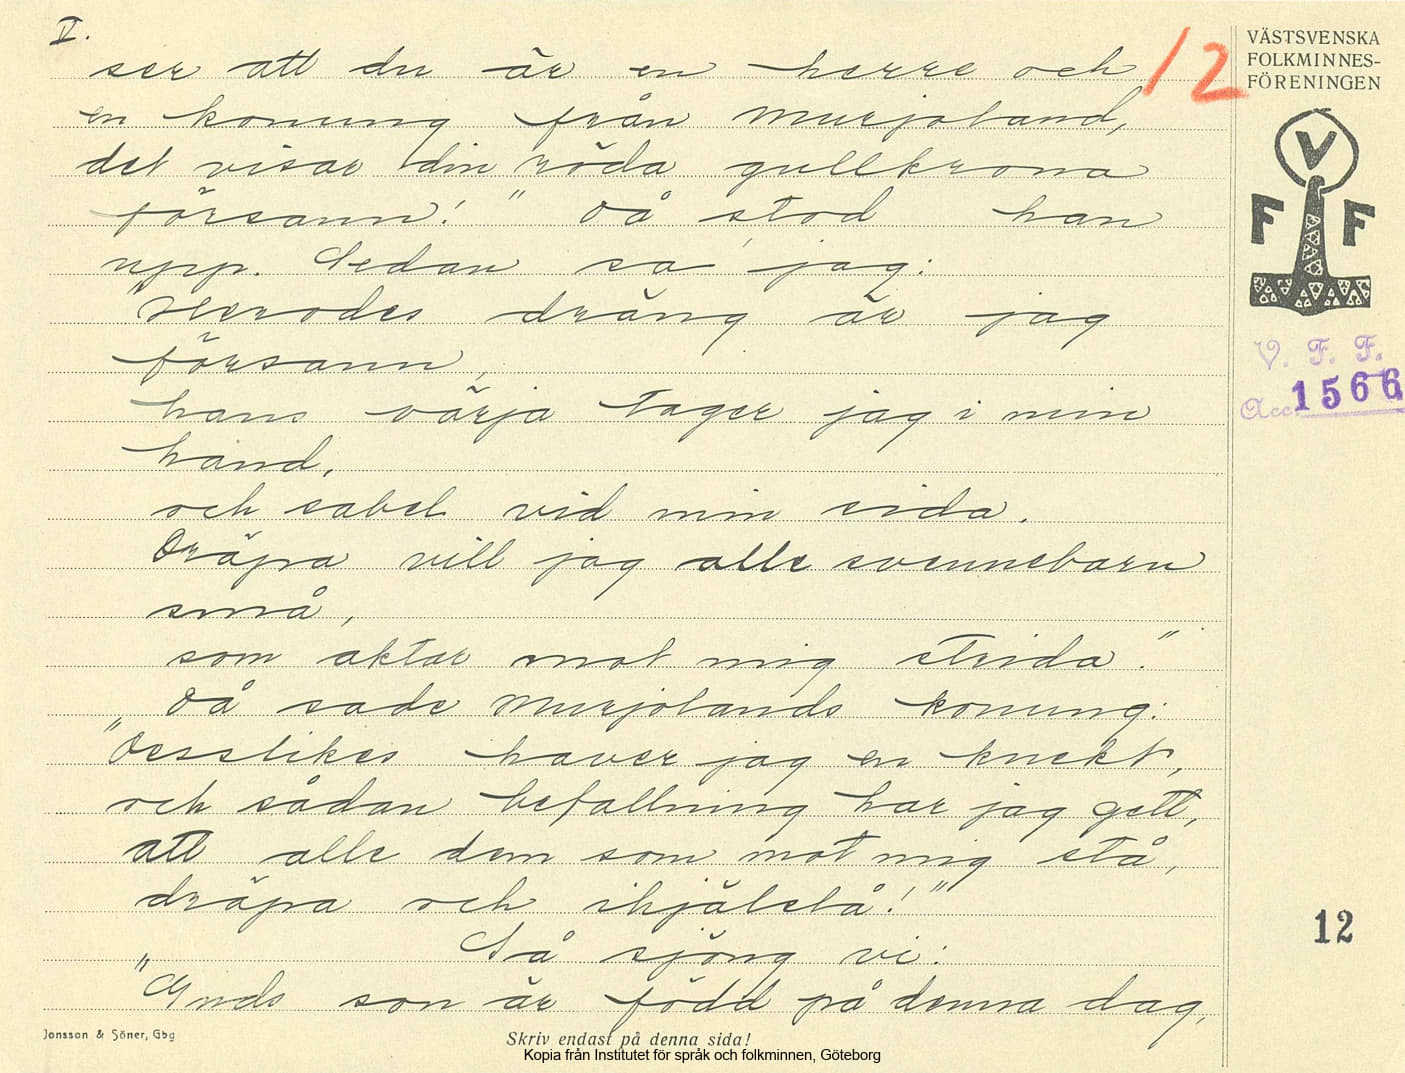 V.
12
ser att du är en herre och
en konung från Murjoland,
det visar din röda gullkrona
försann!" Då stod han
upp. Sedan sa jag:
"Herodes dräng är jag
försann,
hans värja tager jag i min
hand,
och sabel vid min sida.
Dräpa vill jag alle svennebarn
små,
som aktar mot mig strida."
Då sade Murjolands konung:
"Desslikes haver jag en knekt,
och sådan befallning har jag gett,
att alle dem som mot mig stå,
dräpa och ihjälslå!"
Så sjöng vi:
"Guds son är född på denna dag,
VÄSTSVENSKA
FOLKMINNES-
FÖRENINGEN
V
F F
V. F. F.
Acc. 1566
12
Jonsson & Söner, Gbg
Skriv endast på denna sida!
Kopia från Institutet för språk och folkminnen, Göteborg